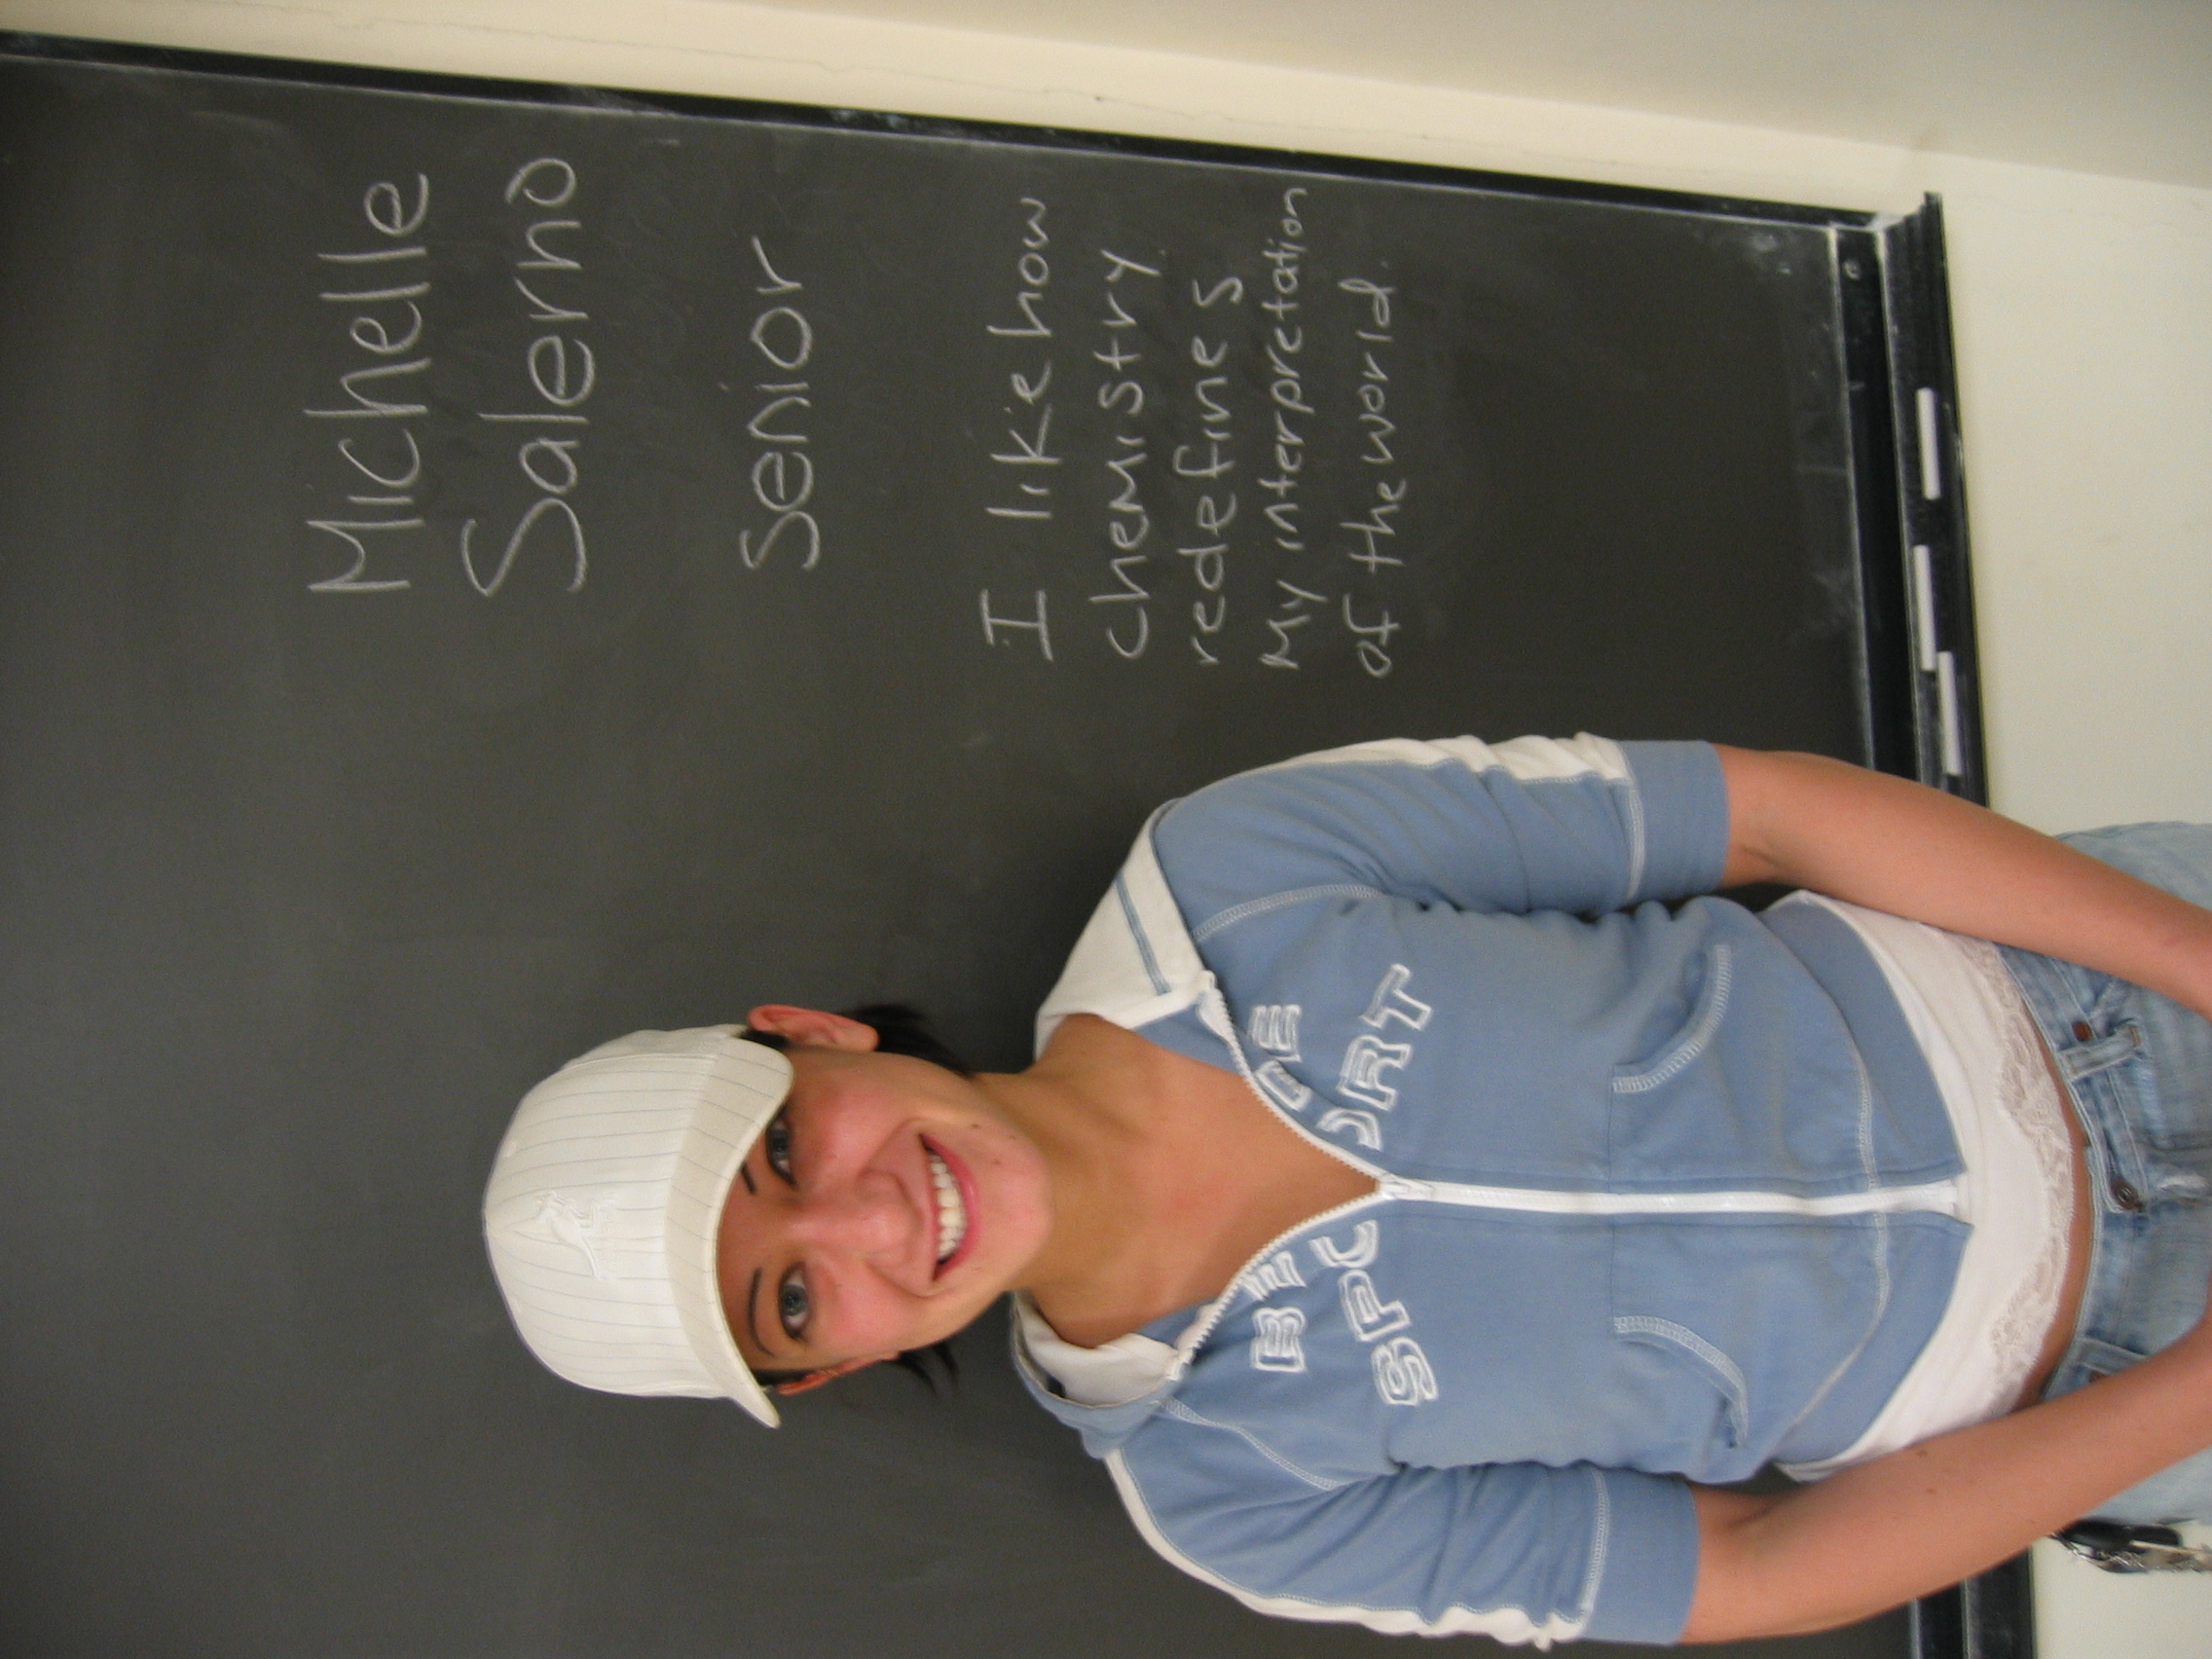 Michelle
Salerno
Senior
I like how
chemistry
redefines
My interpretation
of the world.
BE
SPORT